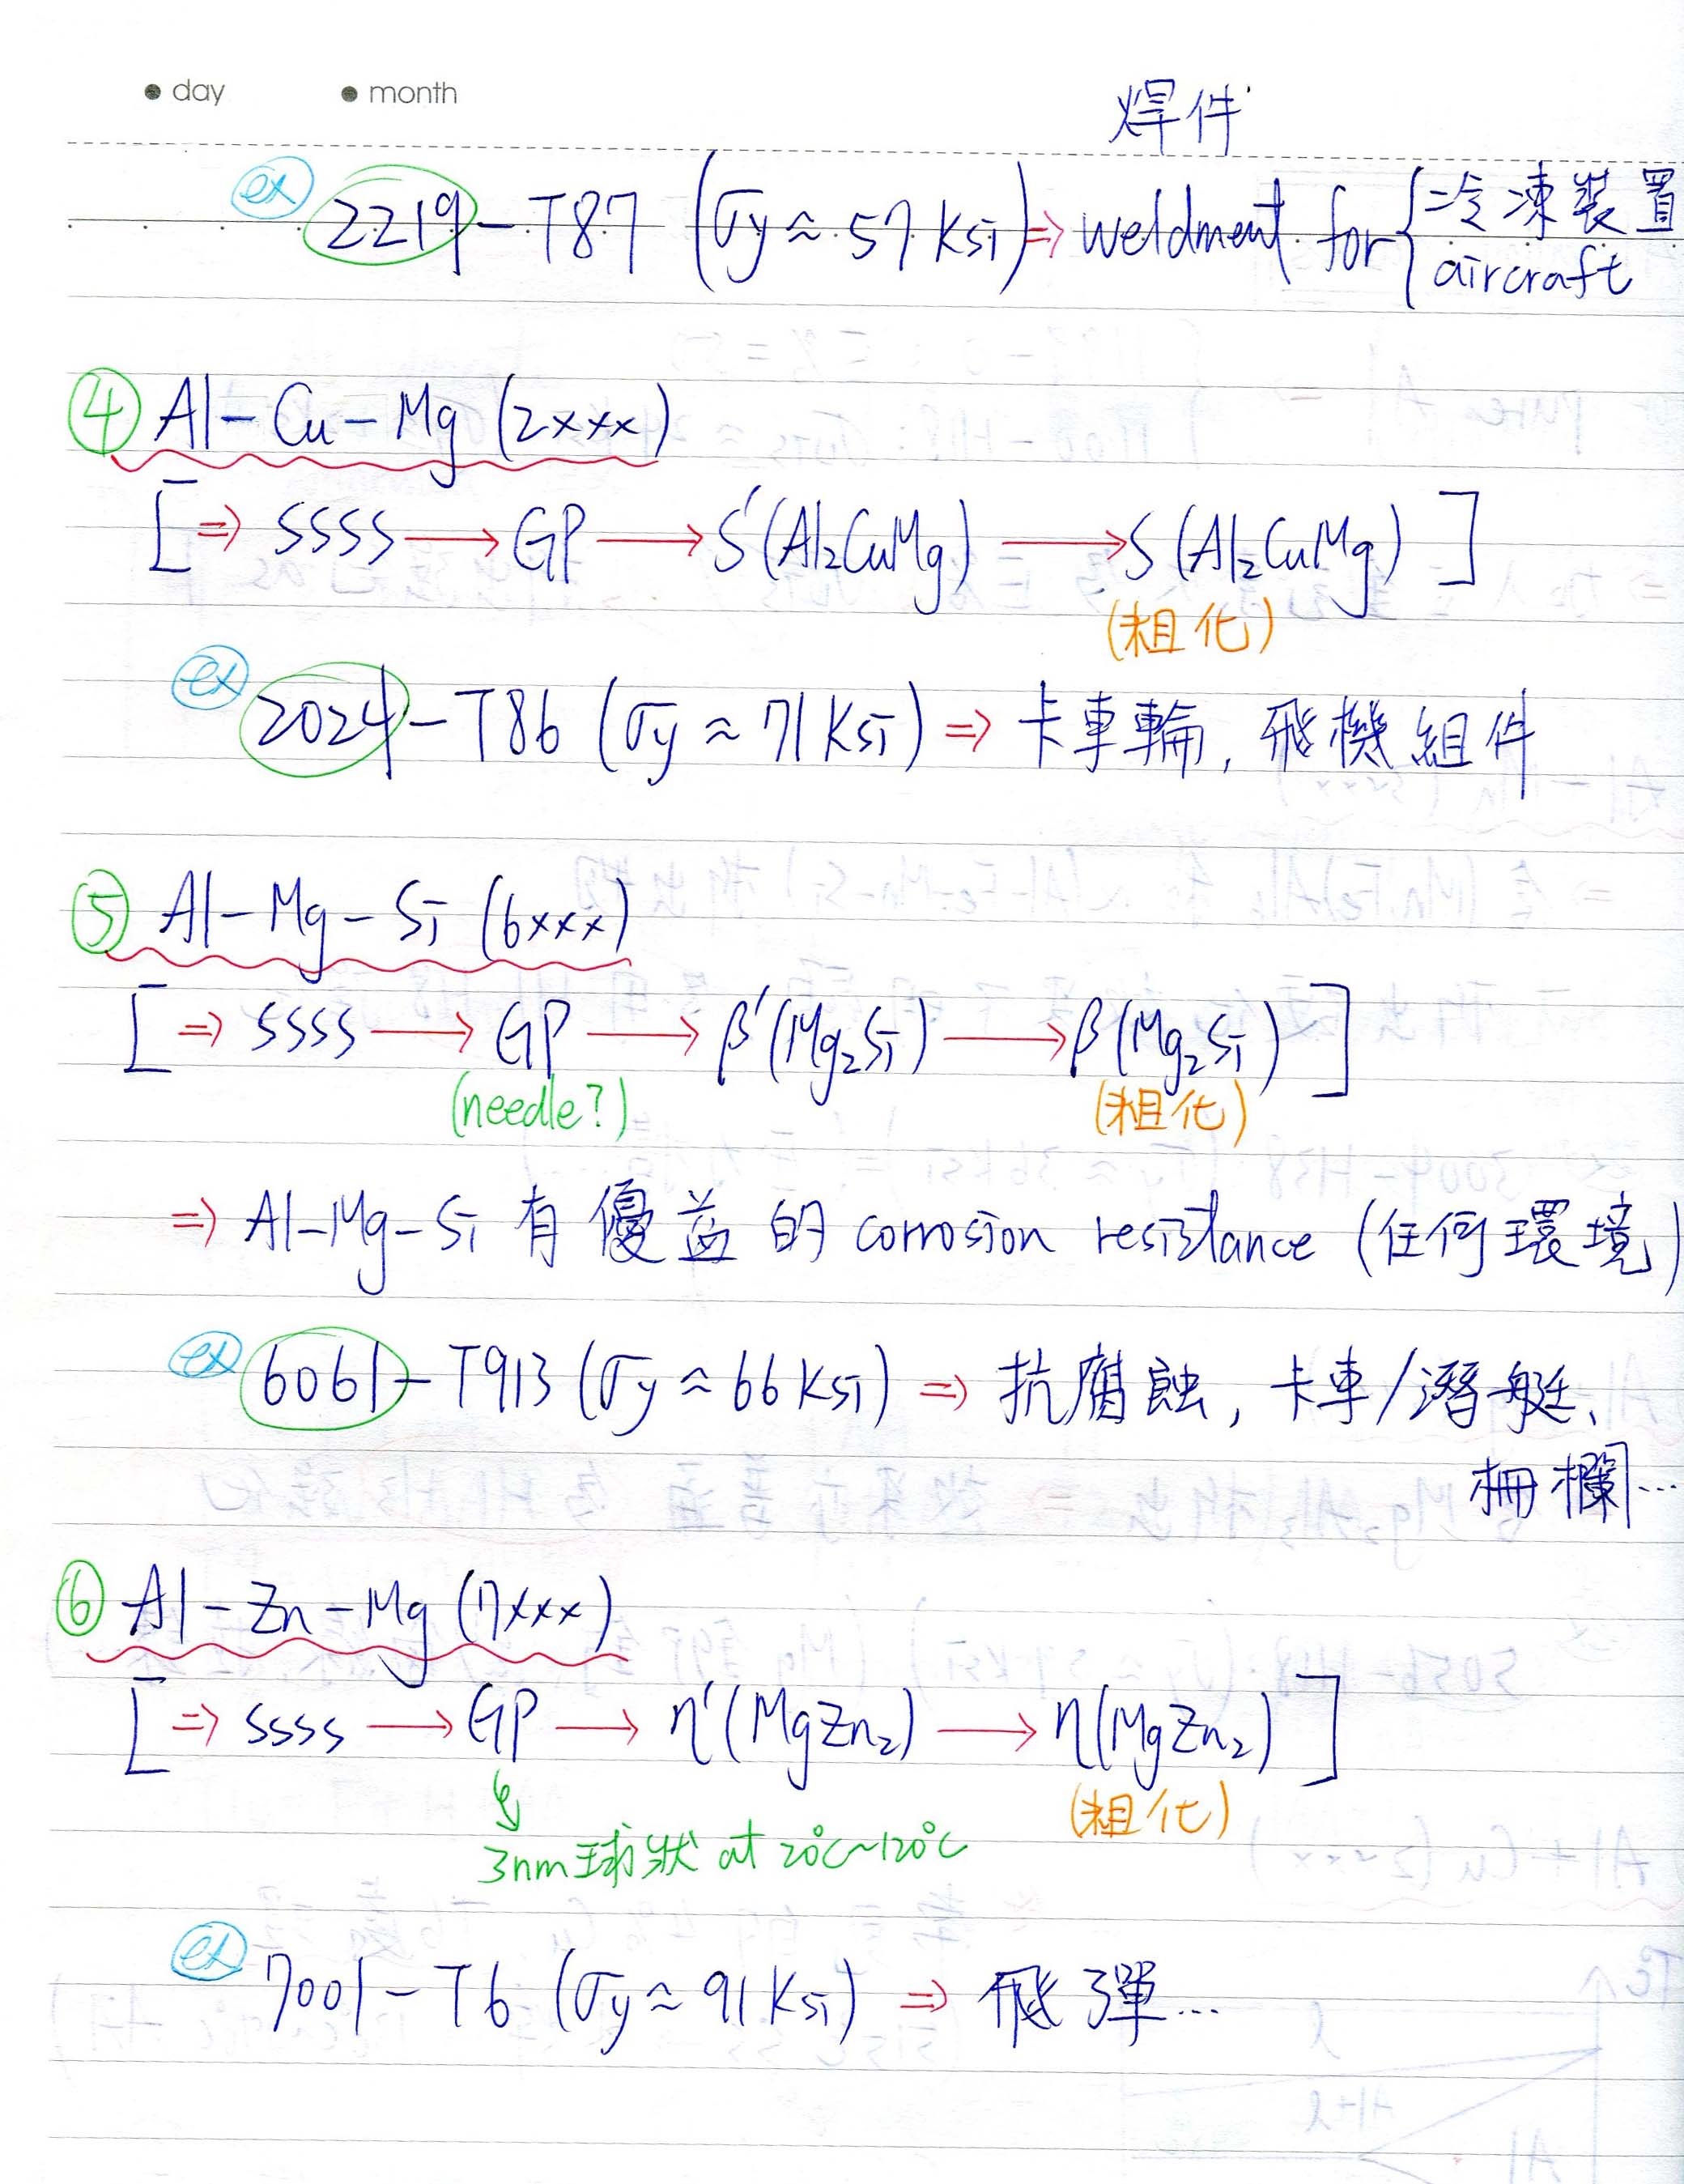 day month
焊件
ex 2219-T87 (σy ≈ 57 ksi) ⇒ weldment for { 冷凍裝置
aircraft
④ Al-Cu-Mg (2xxx)
[⇒ ssss → GP → S′(Al₂CuMg) → S (Al₂CuMg) ]
(粗化)
ex 2024-T86 (σy ≈ 71 ksi) ⇒ 卡車輪, 飛機組件
⑤ Al-Mg-Si (6xxx)
[⇒ ssss → GP → β′(Mg₂Si) → β(Mg₂Si) ]
(needle?) (粗化)
⇒ Al-Mg-Si 有優益的 corrosion resistance (任何環境)
ex 6061-T913 (σy ≈ 66 ksi) ⇒ 抗腐蝕, 卡車/潛艇、
柵欄…
⑥ Al-Zn-Mg (7xxx)
[⇒ ssss → GP → η′(MgZn₂) → η(MgZn₂) ]
(粗化)
3nm 球狀 at 20℃~120℃
ex 7001-T6 (σy ≈ 91 ksi) ⇒ 飛彈…